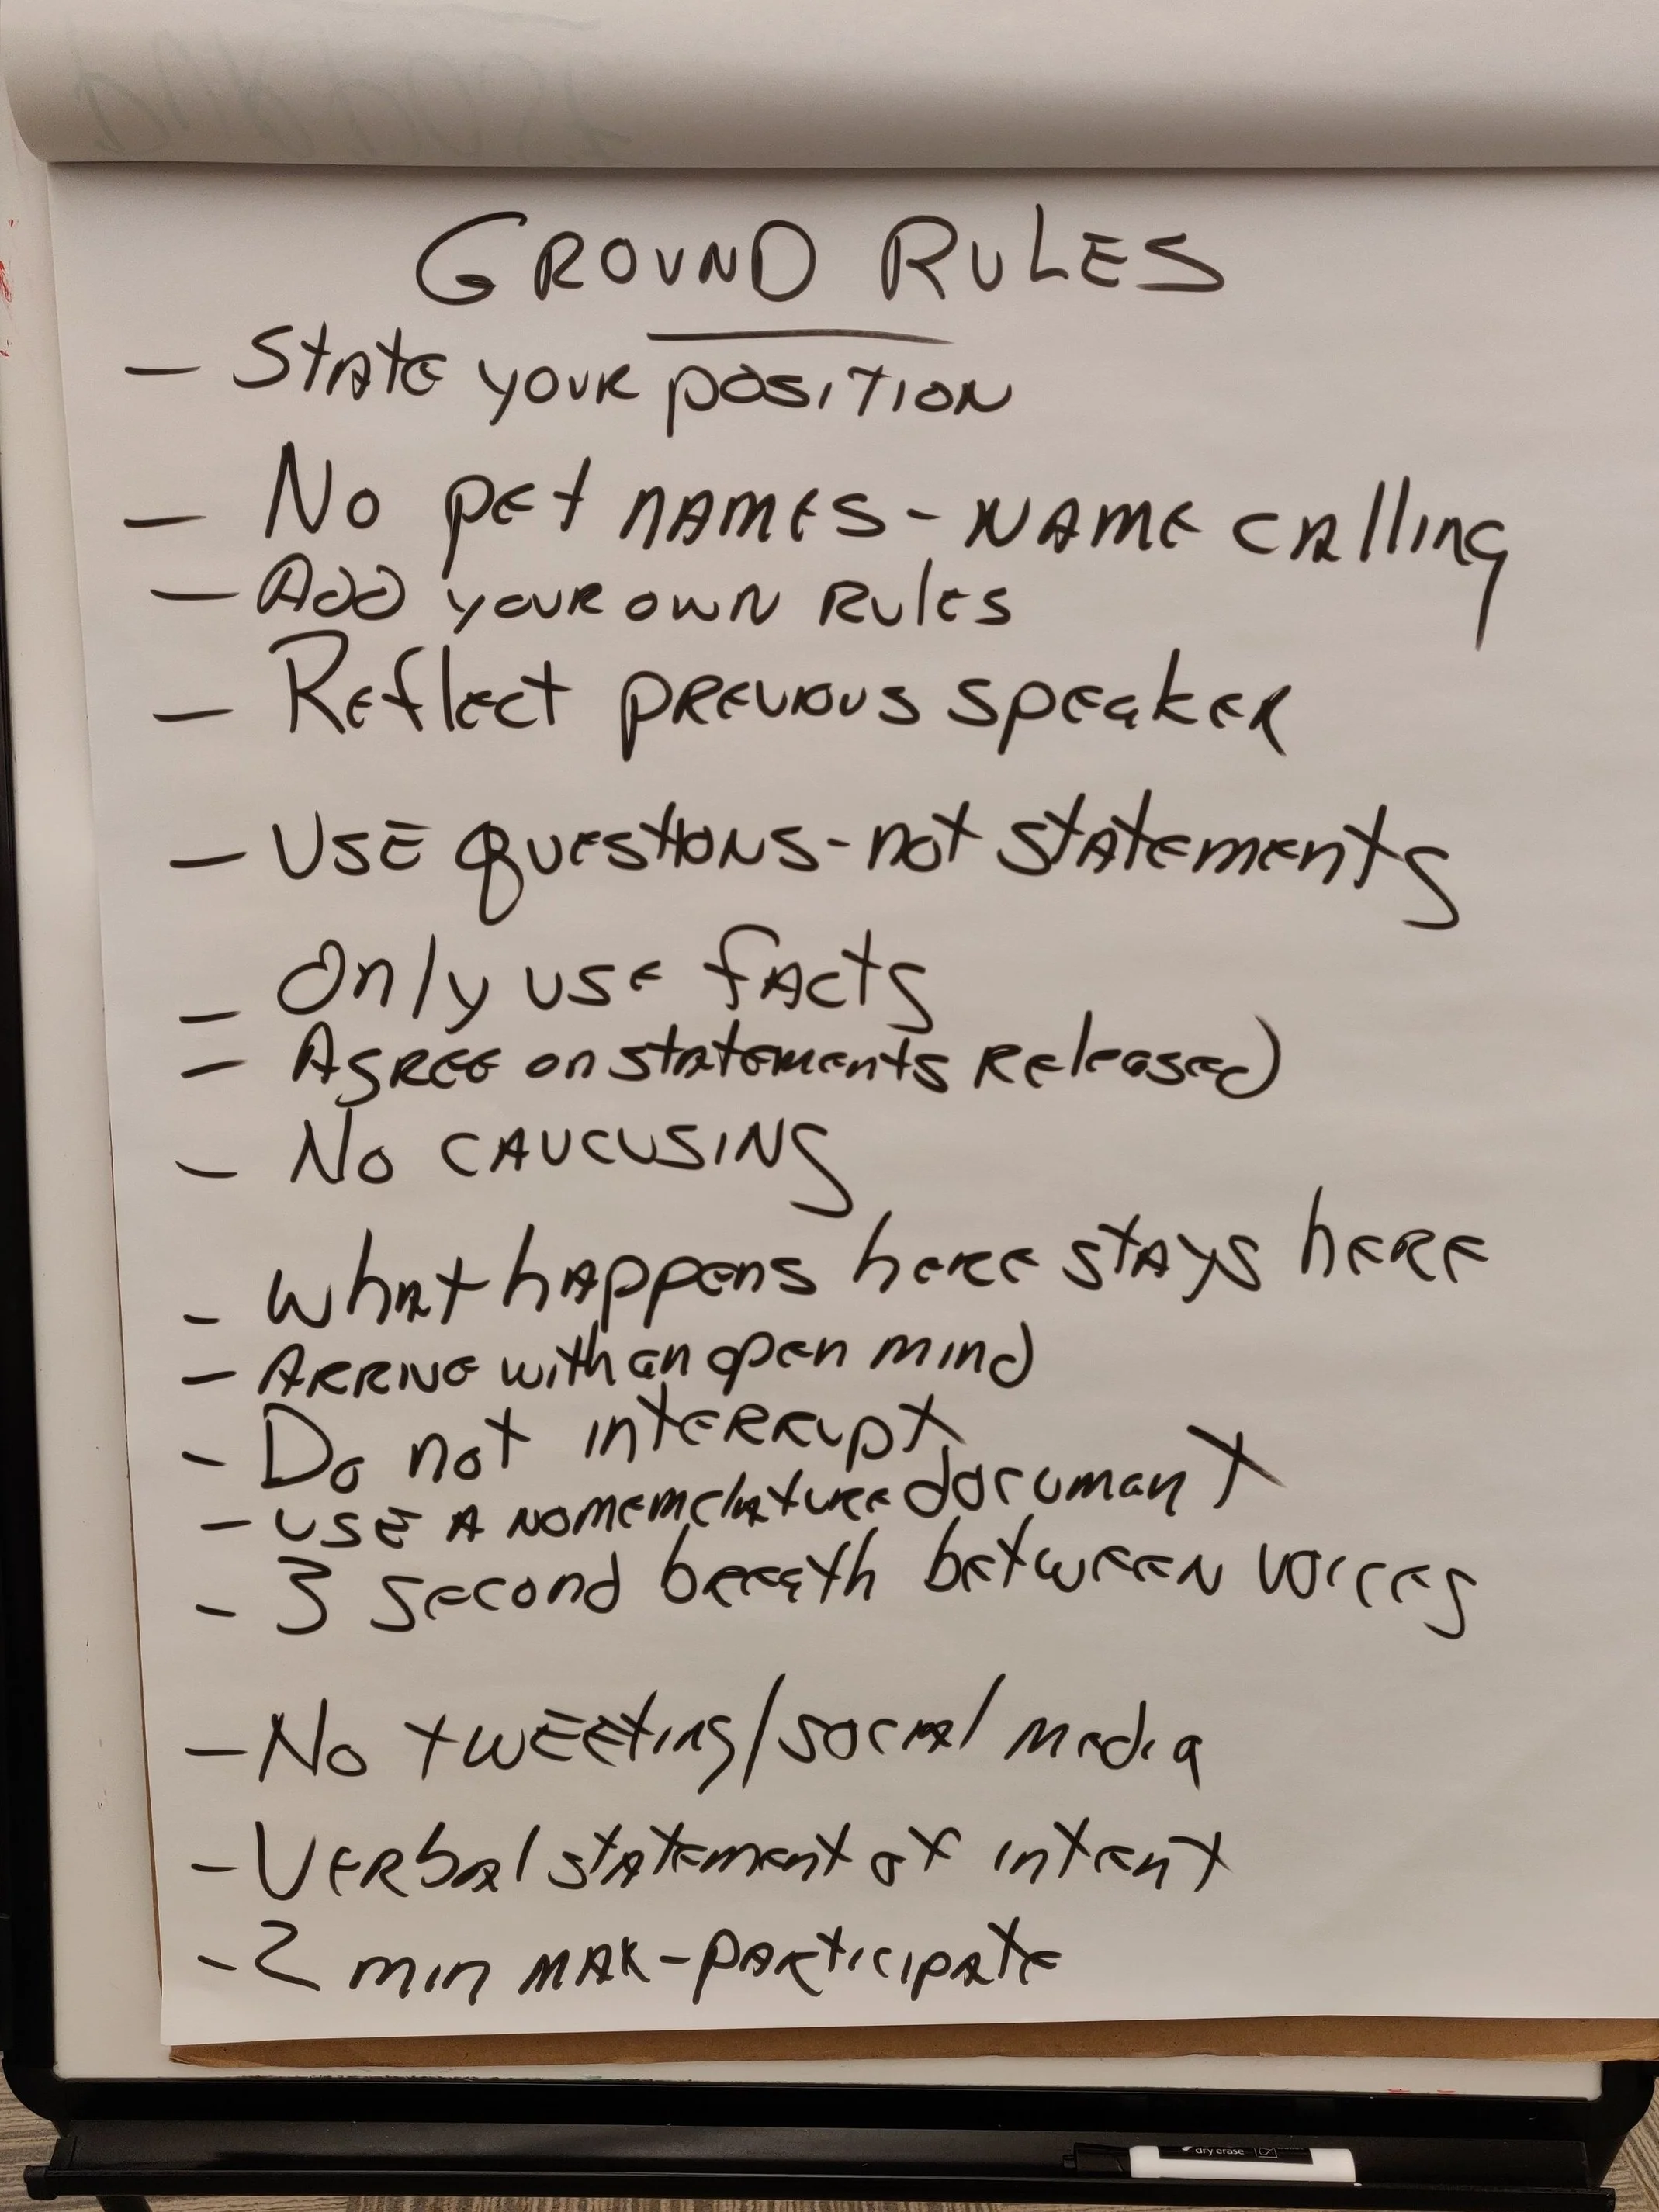 GROUND RULES
- State your position
- No pet names - name calling
- Add your own rules
- Reflect previous speaker
- Use questions - not statements
- Only use facts
- Agree on statements released
- No caucusing
- What happens here stays here
- Arrive with an open mind
- Do not interrupt
- Use a nomemclature document
- 3 second breath between voices
- No tweeting/social media
- Verbal statement of intent
- 2 min max - participate
dry erase